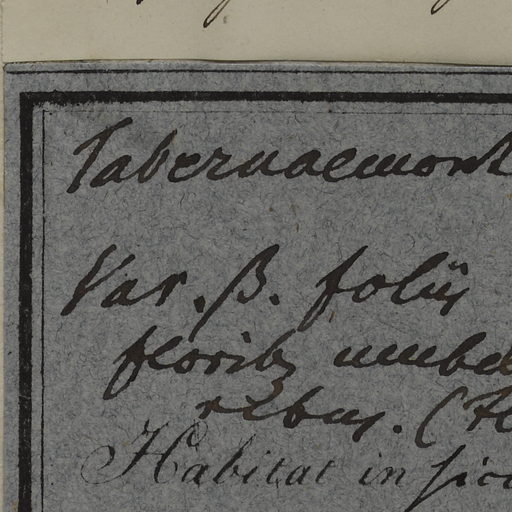 Tabernaemont
Var. β. foliis
floribs umbel
ribus. (H
Habitat in sicc